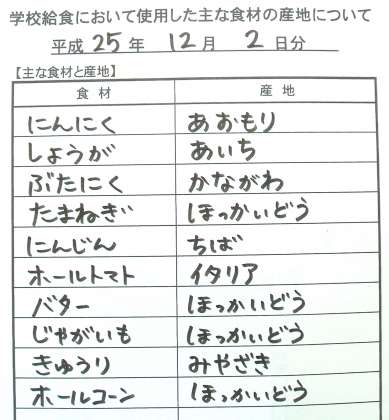 学校給食において使用した主な食材の産地について
平成 25 年 12 月 2 日分
【主な食材と産地】
食材 産地
にんにく あおもり
しょうが あいち
ぶたにく かながわ
たまねぎ ほっかいどう
にんじん ちば
ホールトマト イタリア
バター ほっかいどう
じゃがいも ほっかいどう
きゅうり みやざき
ホールコーン ほっかいどう